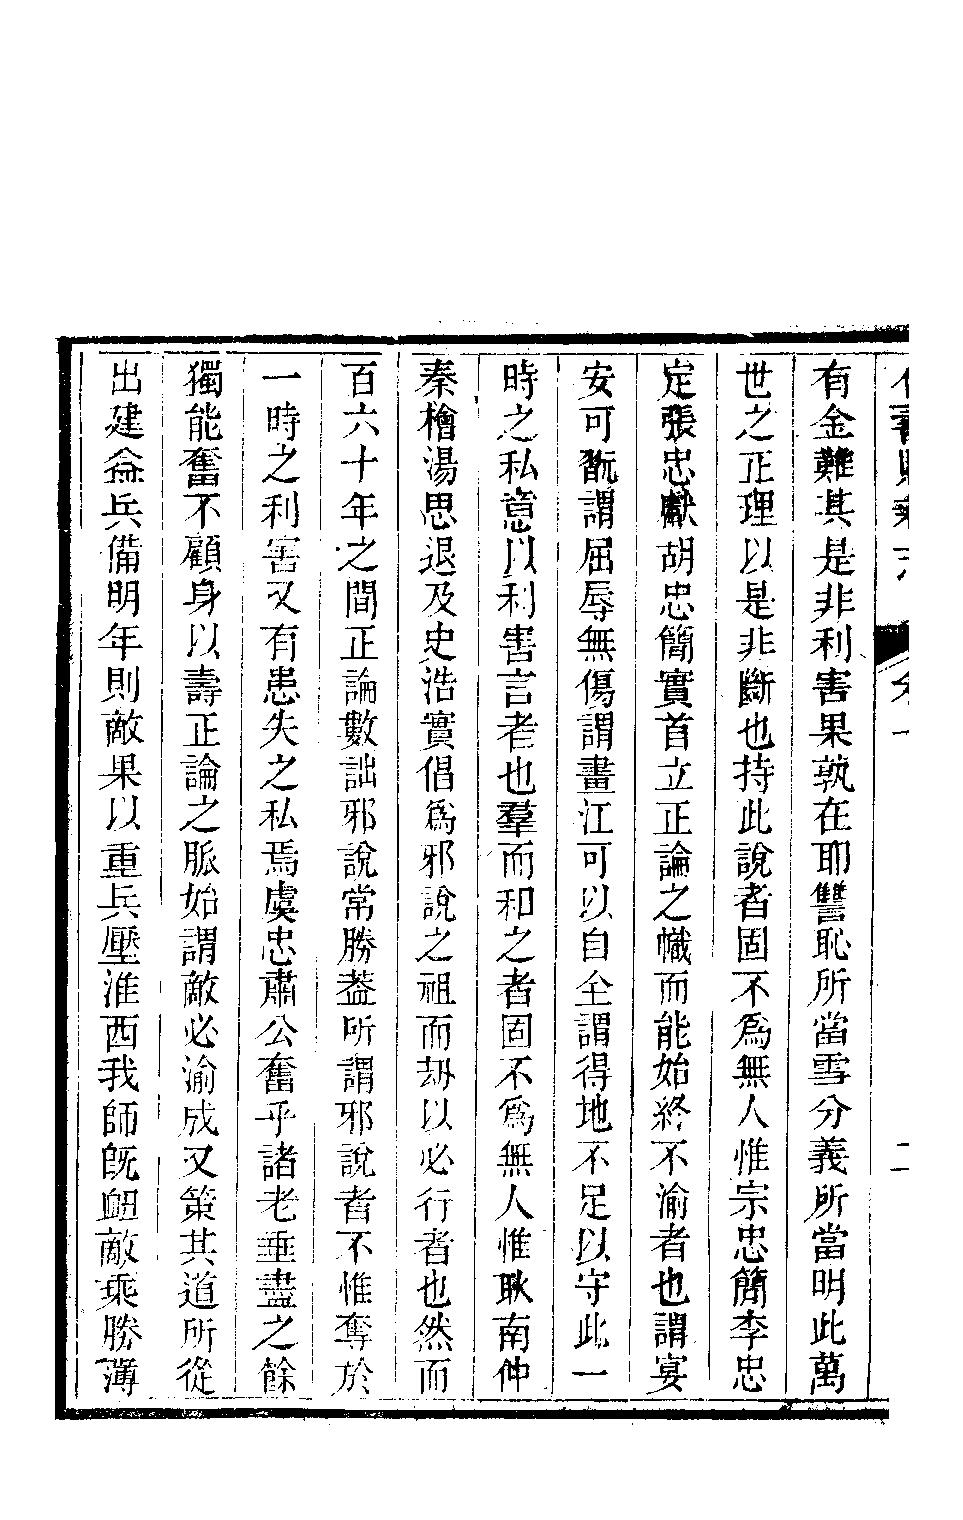 有金難其是非利害果孰在耶讐恥所當雪分義所當明此萬
世之正理以是非斷也持此說者固不爲無人惟宗忠簡李忠
定張忠獻胡忠簡實首立正論之幟而能始終不渝者也謂宴
安可翫謂屈辱無傷謂畫江可以自全謂得地不足以守此一
時之私意以利害言者也羣而和之者固不爲無人惟耿南仲
秦檜湯思退及史浩實倡爲邪說之祖而刼以必行者也然而
百六十年之間正論數詘邪說常勝葢所謂邪說者不惟奪於
一時之利害又有患失之私焉虞忠肅公奮乎諸老垂盡之餘
獨能奮不顧身以壽正論之脈始謂敵必渝成又策其道所從
出建益兵備明年則敵果以重兵壓淮西我師旣衄敵乘勝薄